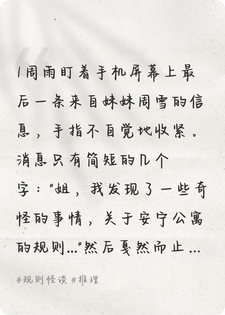 1周雨盯着手机屏幕上最
后一条来自妹妹周雪的信
息，手指不自觉地收紧。
消息只有简短的几个
字："姐，我发现了一些奇
怪的事情，关于安宁公寓
的规则..."然后戛然而止...
#规则怪谈 #推理